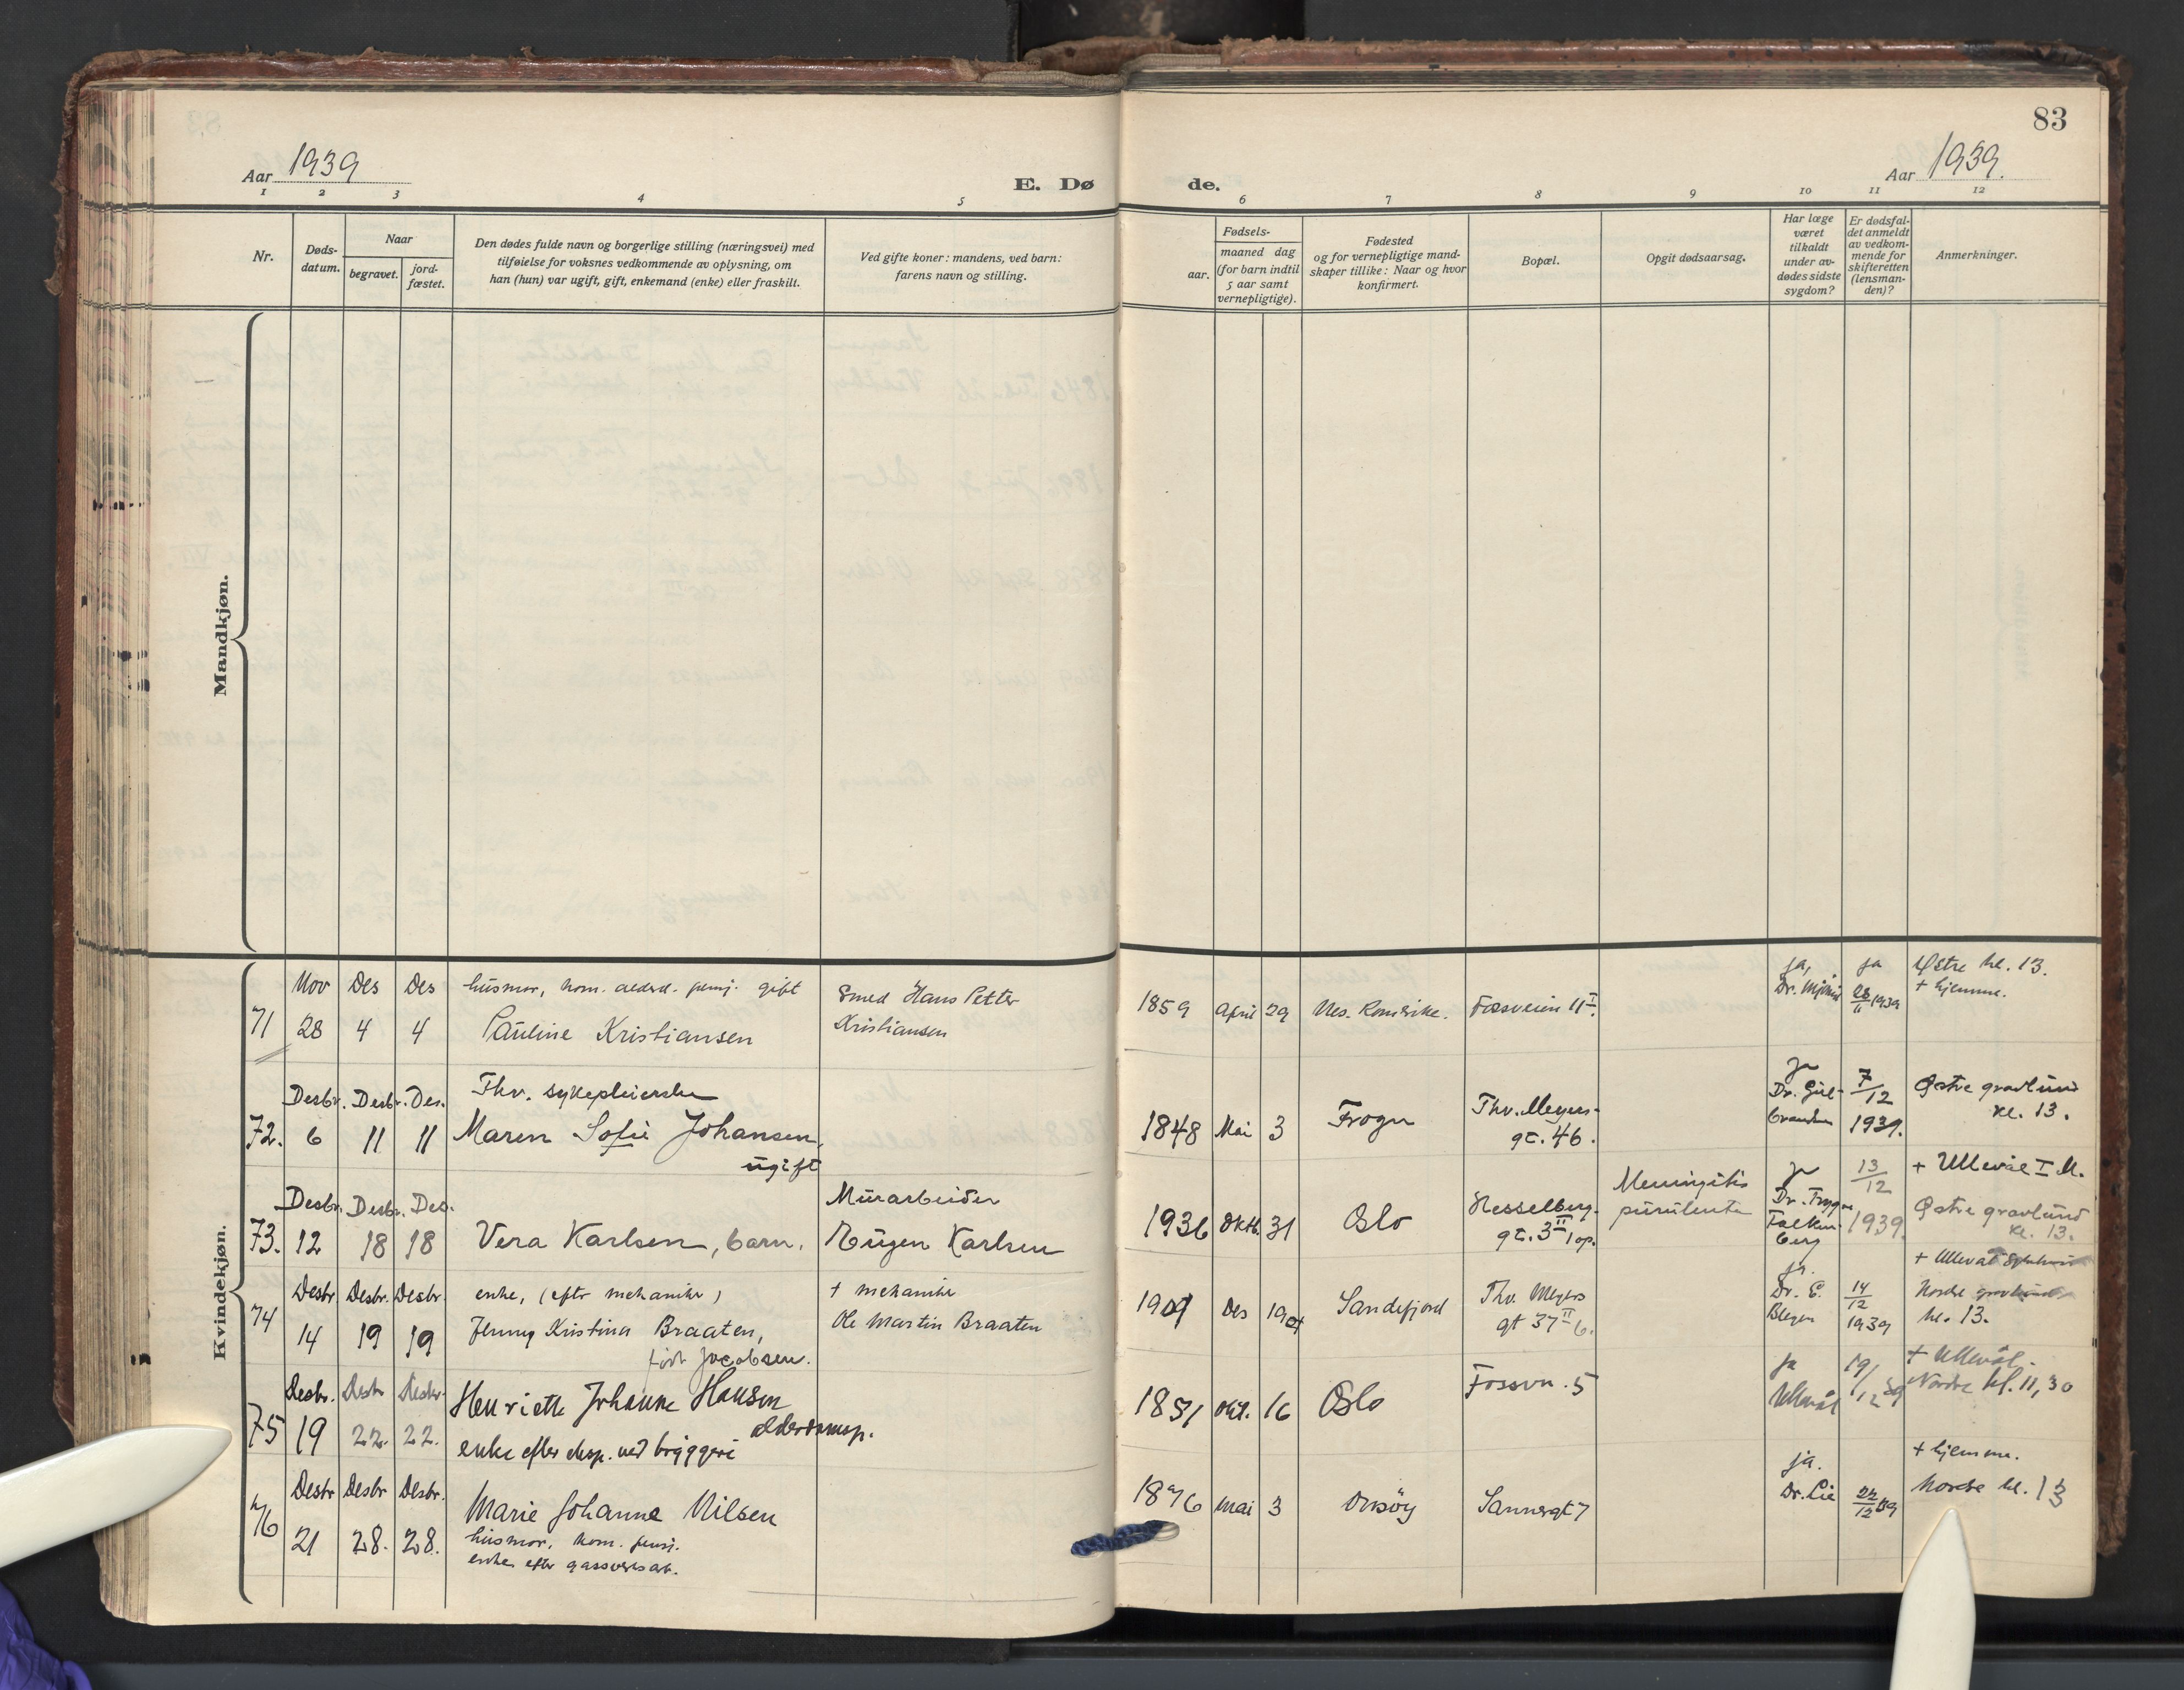 83
Aar 1939
E. Dø de.
Aar 1939.
1 2 3 4 5 6 7 8 9 10 11 12
Nr.
Døds-
datum.
Naar
begravet.
jord-
fæstet.
Den dødes fulde navn og borgerlige stilling (næringsvei) med
tilføielse for voksnes vedkommende av oplysning, om
han (hun) var ugift, gift, enkemand (enke) eller fraskilt.
Ved gifte koner: mandens, ved barn:
farens navn og stilling.
Fødsels-
aar.
maaned dag
(for barn indtil
5 aar samt
vernepligtige).
Fødested
og for vernepligtige mand-
skaper tillike: Naar og hvor
konfirmert.
Bopæl.
Opgit dødsaarsag.
Har læge
været
tilkaldt
under av-
dødes sidste
sygdom?
Er dødsfal-
det anmeldt
av vedkom-
mende for
skifteretten
(lensman-
den)?
Anmerkninger.
Mandkjøn.
Kvindekjøn.
71
Nov 28
Des 4
Des 4
husmor, kom. alderd. pensj. gift
Pauline Kristiansen
Smed Hans Petter
Kristiansen
1859 April 29
Nes. Romerike.
Fossveien 11 I.
ja,
Dr.
ja
28/11 1939
Østre kl. 13.
+ hjemme.
72.
Desbr. 6
Desbr. 11
Des. 11
Fhv. sykepleierske
Maren Sofie Johansen,
ugift
1848 Mai 3
Frogn
Thv. Meyers-
gt. 46.
Ja
Dr. Gul-
brandsen
7/12
1939.
Østre gravlund
kl. 13.
73.
Desbr. 12
Desbr. 18
Des. 18
Vera Karlsen, barn.
Murarbeider
Eugen Karlsen
1936 Oktb. 31
Oslo
Hesselberg-
gt. 3 II op.
Meningitis
purulenta
Ja
Dr. Trygve
Falken-
berg
13/12
1939.
+ Ullevål I M.
Østre gravlund
kl. 13.
74
Desbr. 14
Desbr. 19
Desbr. 19
enke, (efter mekaniker)
Jenny Kristina Braaten,
født Jacobsen.
+ mekaniker
Ole Martin Braaten
Des
Sandefjord
Thv. Meyers
gt 37 II 6.
ja.
Dr. E.
14/12
1939
+ Ullevål
Nordre gravlund
kl. 13.
75
Desbr. 19
Desbr 22.
Desbr. 22.
Henriette Johanne Hansen
alderdomsp.
enke efter eksp. ved bryggeri
1851 Okt. 16
Oslo
Fossvn. 5
ja
Ullevål
19/12 39
+ Ullevål.
Nordre kl. 11,30
76
Desbr 21
Desbr 28.
Desbr. 28.
Marie Johanne Nilsen
husmor, kom. pensj.
enke efter gassverksarb.
1876 Mai 3
Onsøy
Sannergt 7
ja.
Dr. Lie
22/12 39
+ hjemme.
Nordre kl. 13